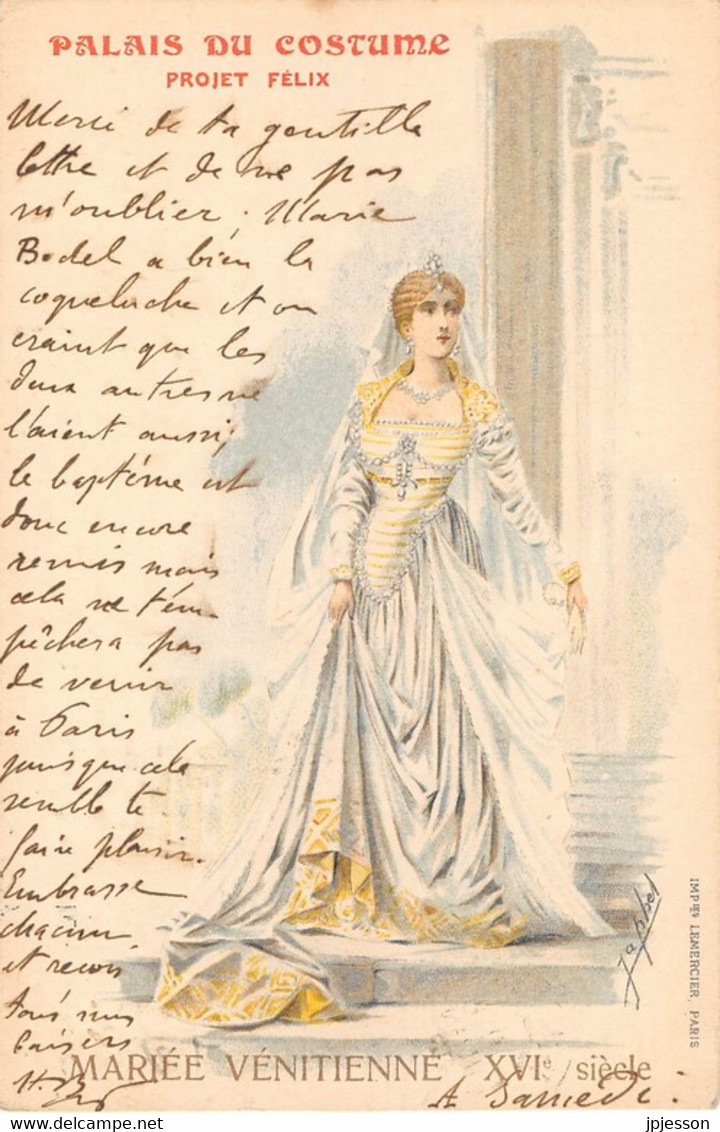 PALAIS DU COSTUME
PROJET FÉLIX
Merci de ta gentille
lettre et de ne pas
m'oublier. Marie
Bodel a bien la
coqueluche et on
craint que les
deux autres ne
l'aient aussi,
le baptême est
donc encore
remis mais
cela ne t'em
pêchera pas
de venir
à Paris
puisque cela
semble te
faire plaisir.
Embrasse
chacun
et reçois
tous nos
baisers
MARIÉE VÉNITIENNE XVIe siècle
A Samedi.
Japhet
IMPies LEMERCIER, PARIS
jpjesson